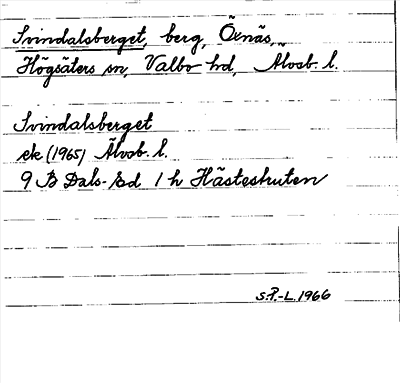 Svindalsberget, berg, Örnäs,
Högsäters sn, Valbo hd, Älvsb. l.
Svindalsberget
ek (1965) Älvsb. l.
9 B Dals-Ed 1 h Hästeskuten
S.P.-L. 1966